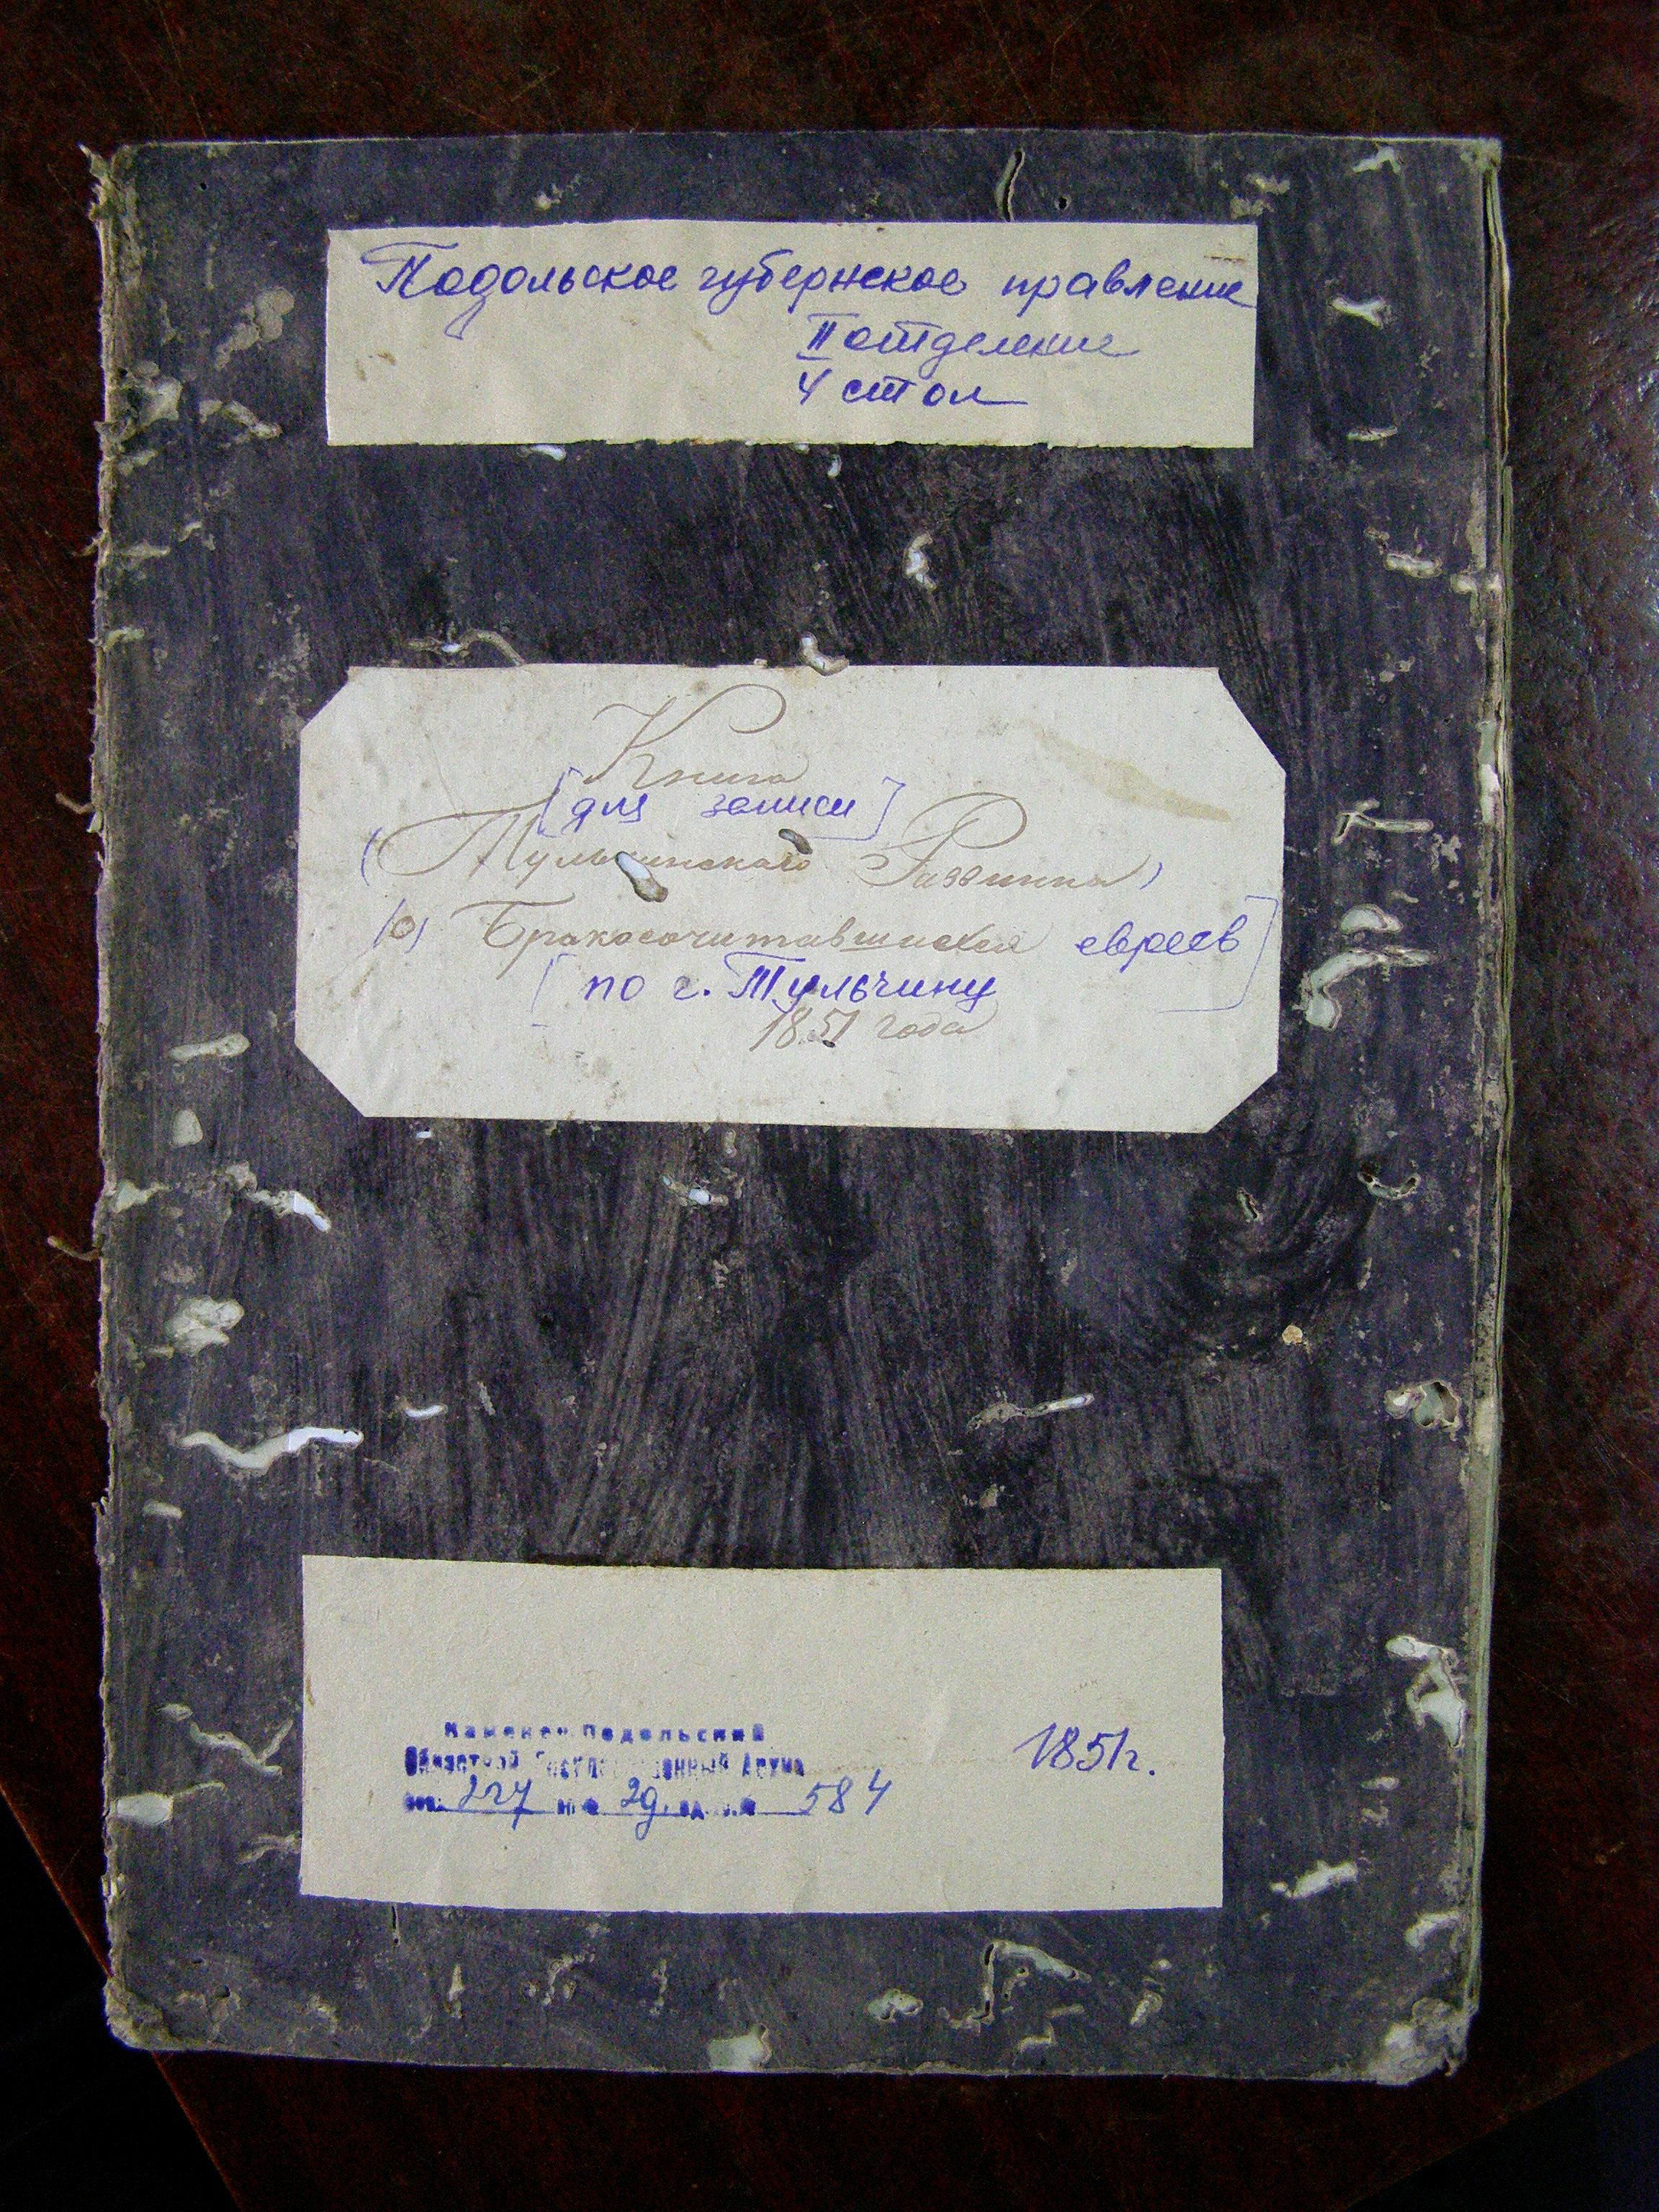 Подольское губернское правление
II отделение
4 стол
Книга
[для записи]
(Тульчинскаго Раввина)
(о) Бракосочитавшихся евреев
[по г. Тульчину]
1851 года
Каменец-Подольский
Областной Государственный Архив
227 29. 584
1851г.